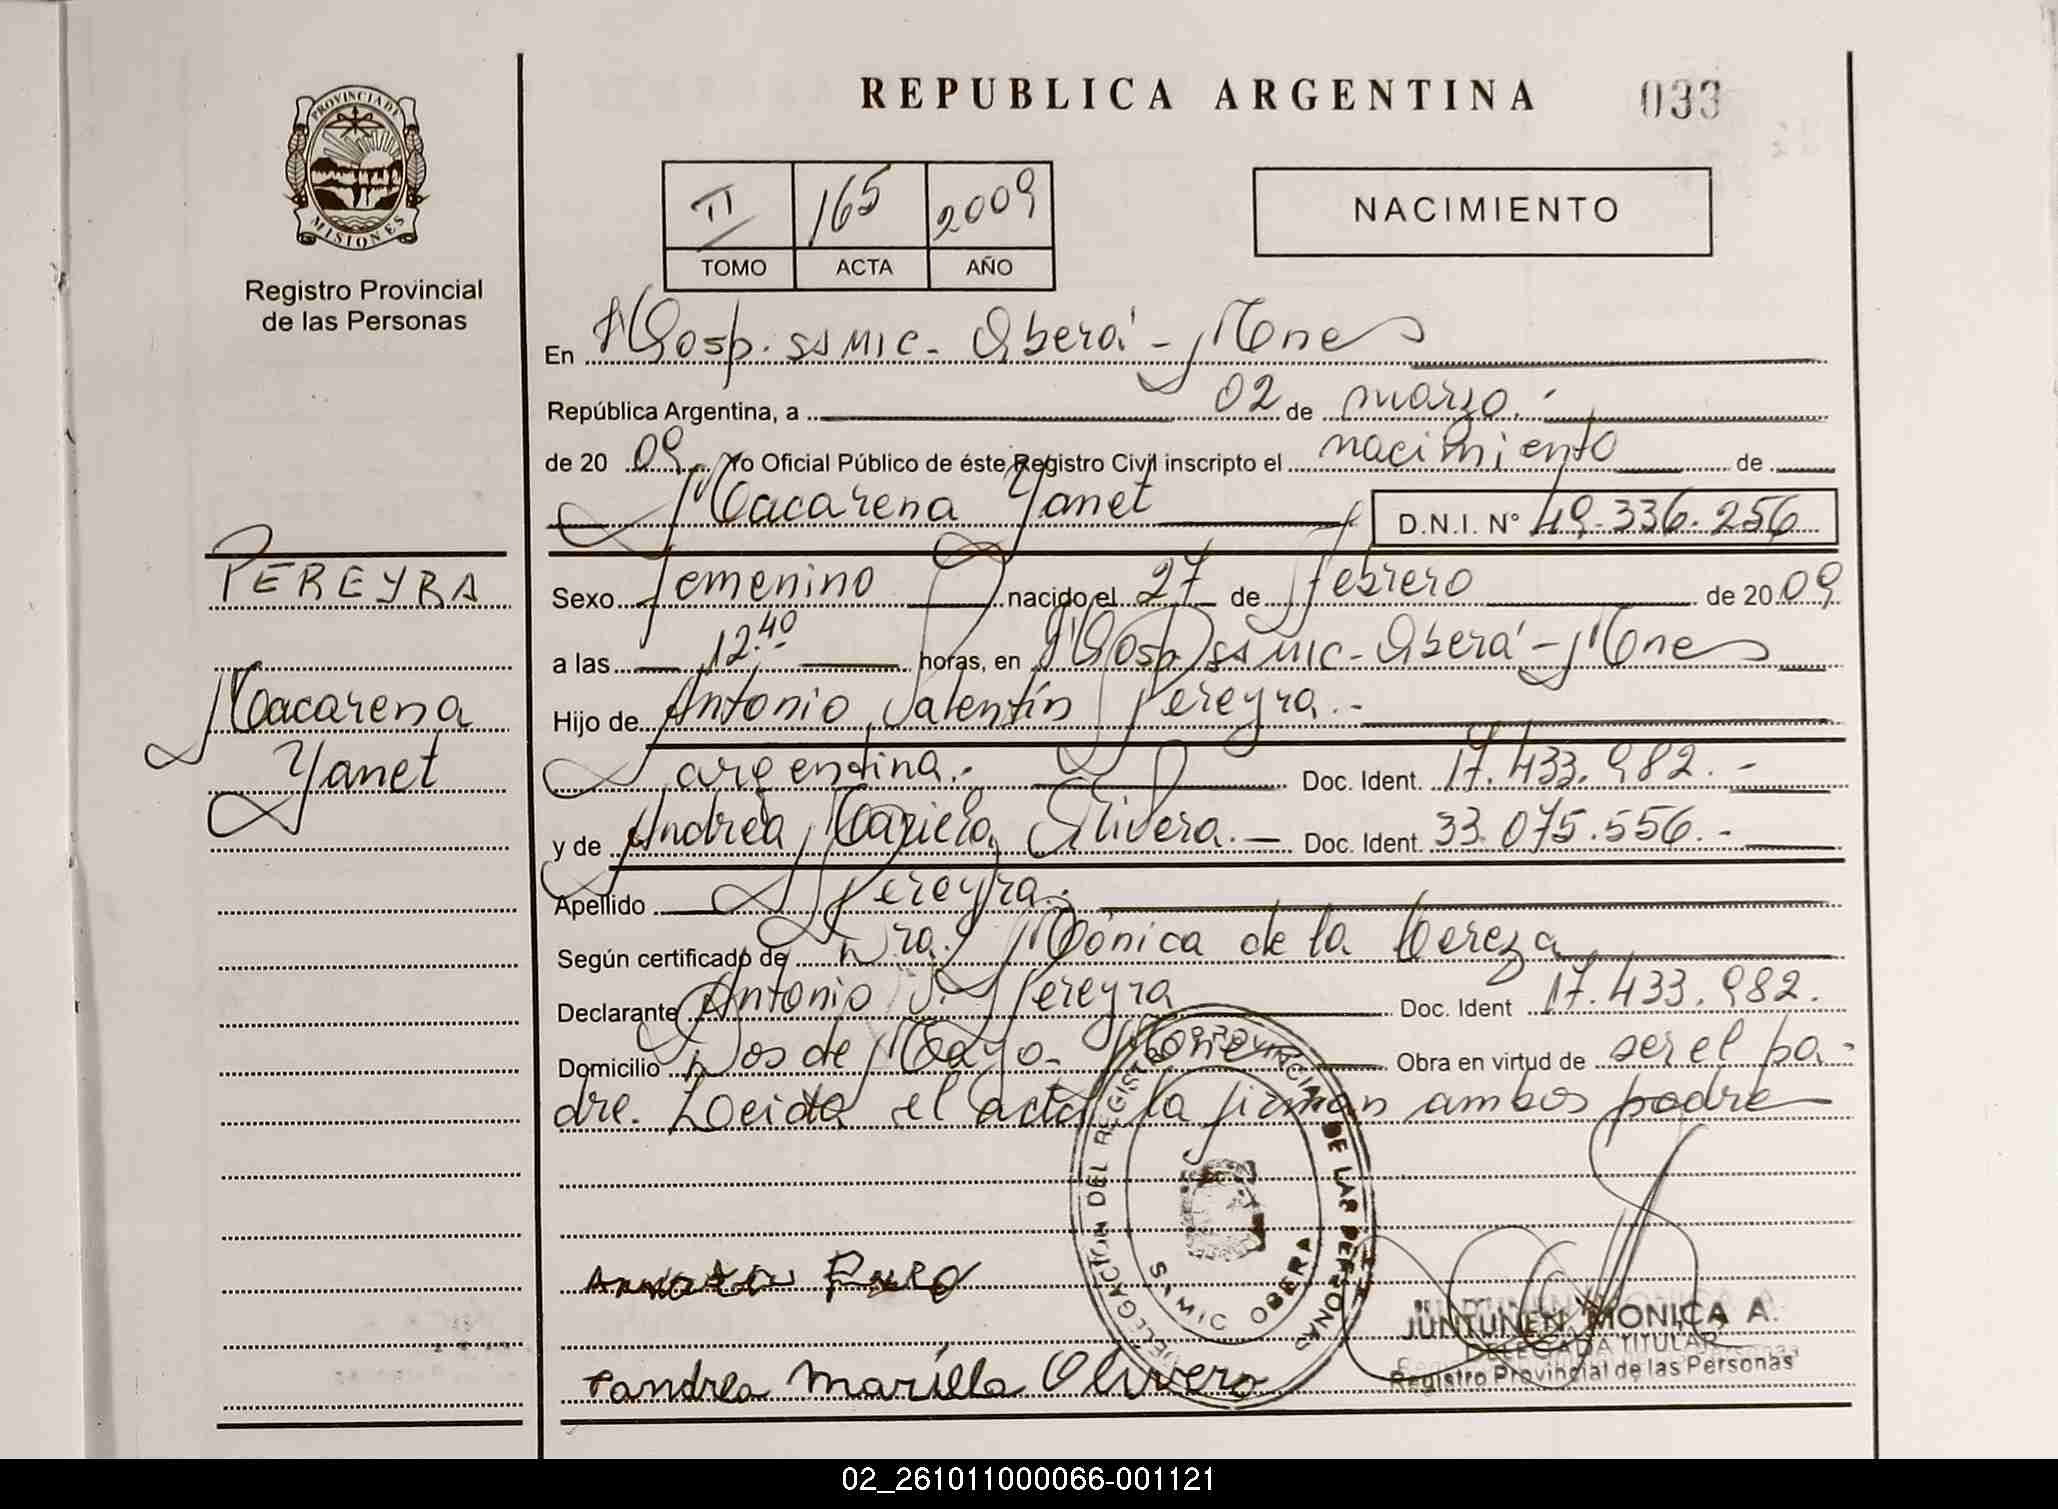 REPUBLICA ARGENTINA
033
PROVINCIA DE
MISIONES
Registro Provincial
de las Personas
II 165 2009
TOMO ACTA AÑO
NACIMIENTO
En Hosp. SAMIC - Oberá - Mnes
República Argentina, a 02 de marzo.-
de 2009 Yo Oficial Público de éste Registro Civil inscripto el nacimiento de
Macarena Yanet D.N.I. Nº 49.336.256
PEREYRA
Macarena
Yanet
Sexo femenino nacido el 27 de febrero de 2009
a las 12.40 horas, en Hosp SAMIC - Oberá - Mnes
Hijo de Antonio Valentín Pereyra.-
argentina.- Doc. Ident. 17.433.982.-
y de Andrea Mariela Olivera.- Doc. Ident. 33.075.556.-
Apellido Pereyra.-
Según certificado de Dra. Mónica de la
Declarante Antonio V. Pereyra Doc. Ident 17.433.982.
Domicilio Dos de Mayo - Mnes Obra en virtud de ser el pa-
dre. Leida el acta la firman ambos padre
DELEGACION DEL REGISTRO PROVINCIAL DE LAS PERSONAS
SAMIC OBERA
JUNTUNEN, MONICA A.
DELEGADA TITULAR
Registro Provincial de las Personas
Olivera
02_261011000066-001121